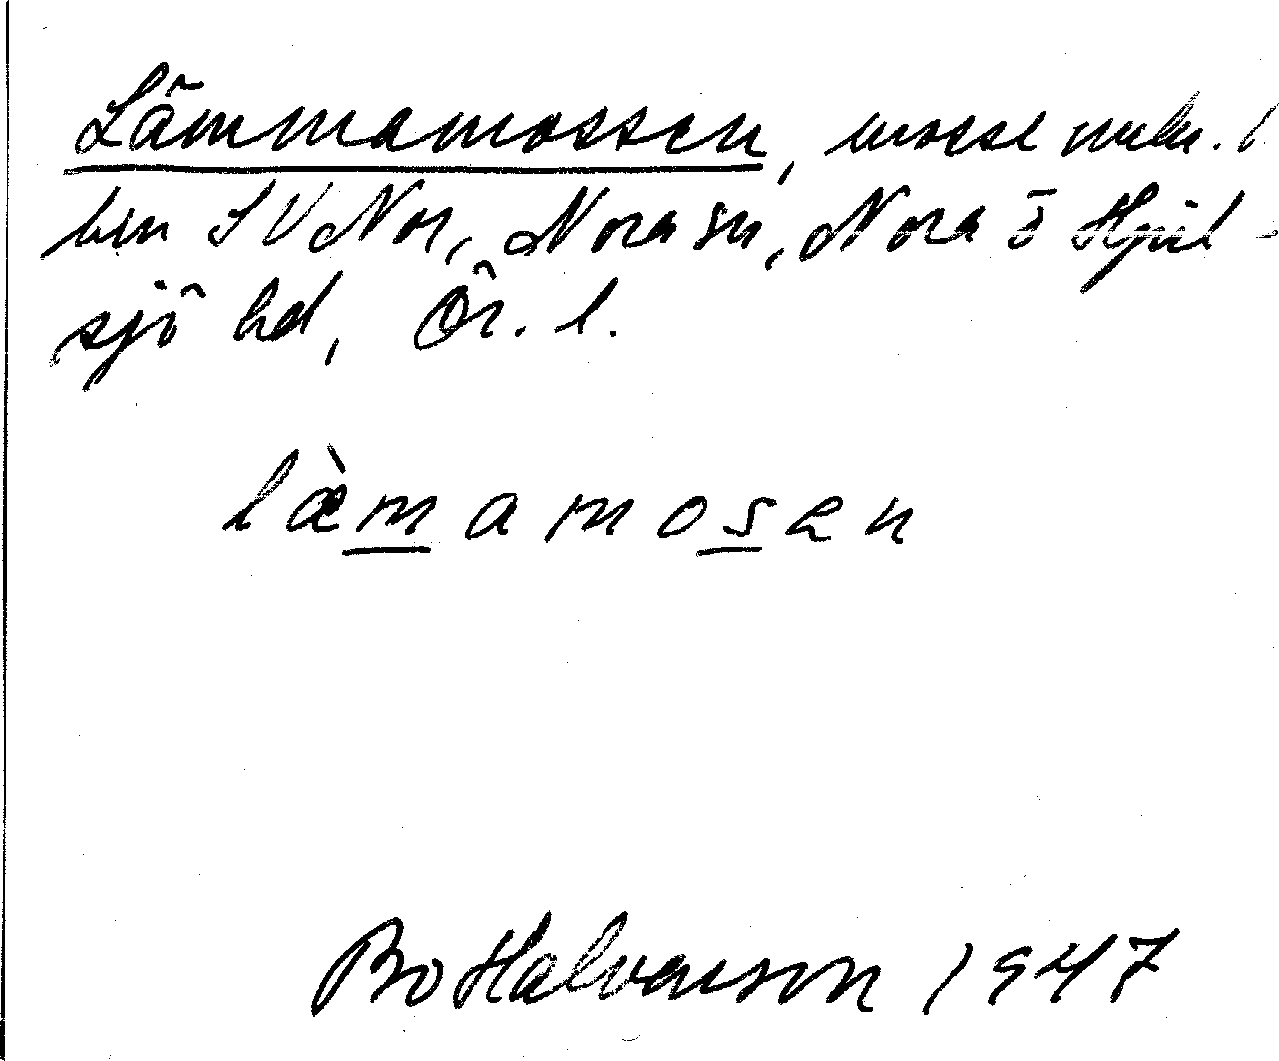 Lämmamossen, mosse
SV Nor, Nora sn, Nora o Hjul-
sjö hd, Ör. l.
læ̀mamosen
Bo Halvarson 1947